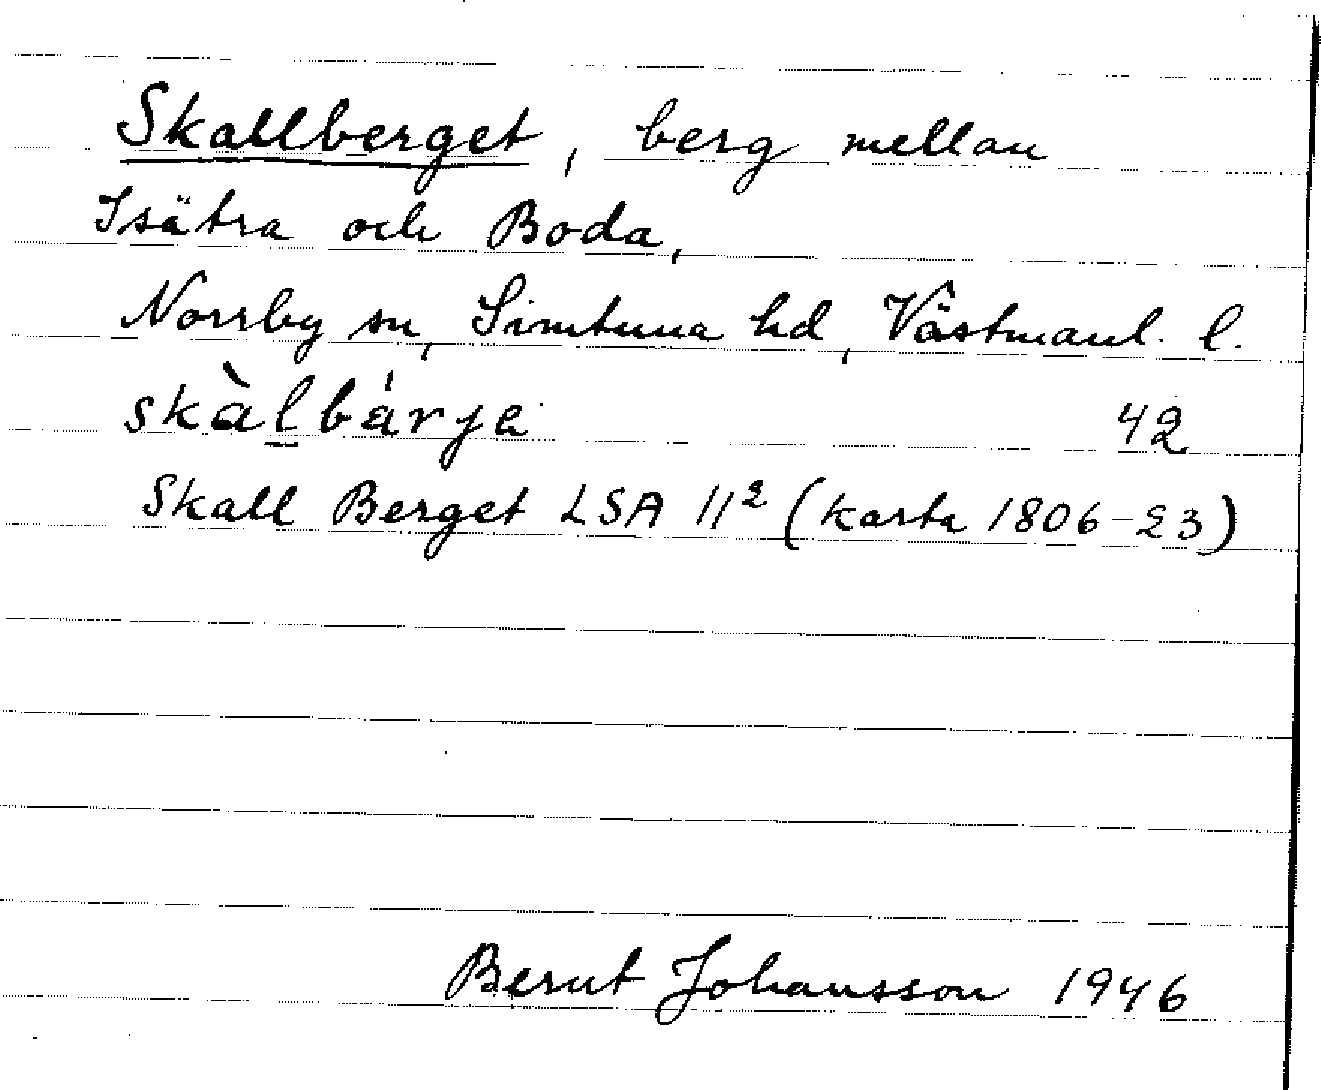 Skallberget, berg mellan
Isätra och Boda,
Norrby sn, Simtuna hd, Västmanl. l.
skàlbárje 42
Skall Berget LSA 11² (karta 1806-23)
Bernt Johansson 1946